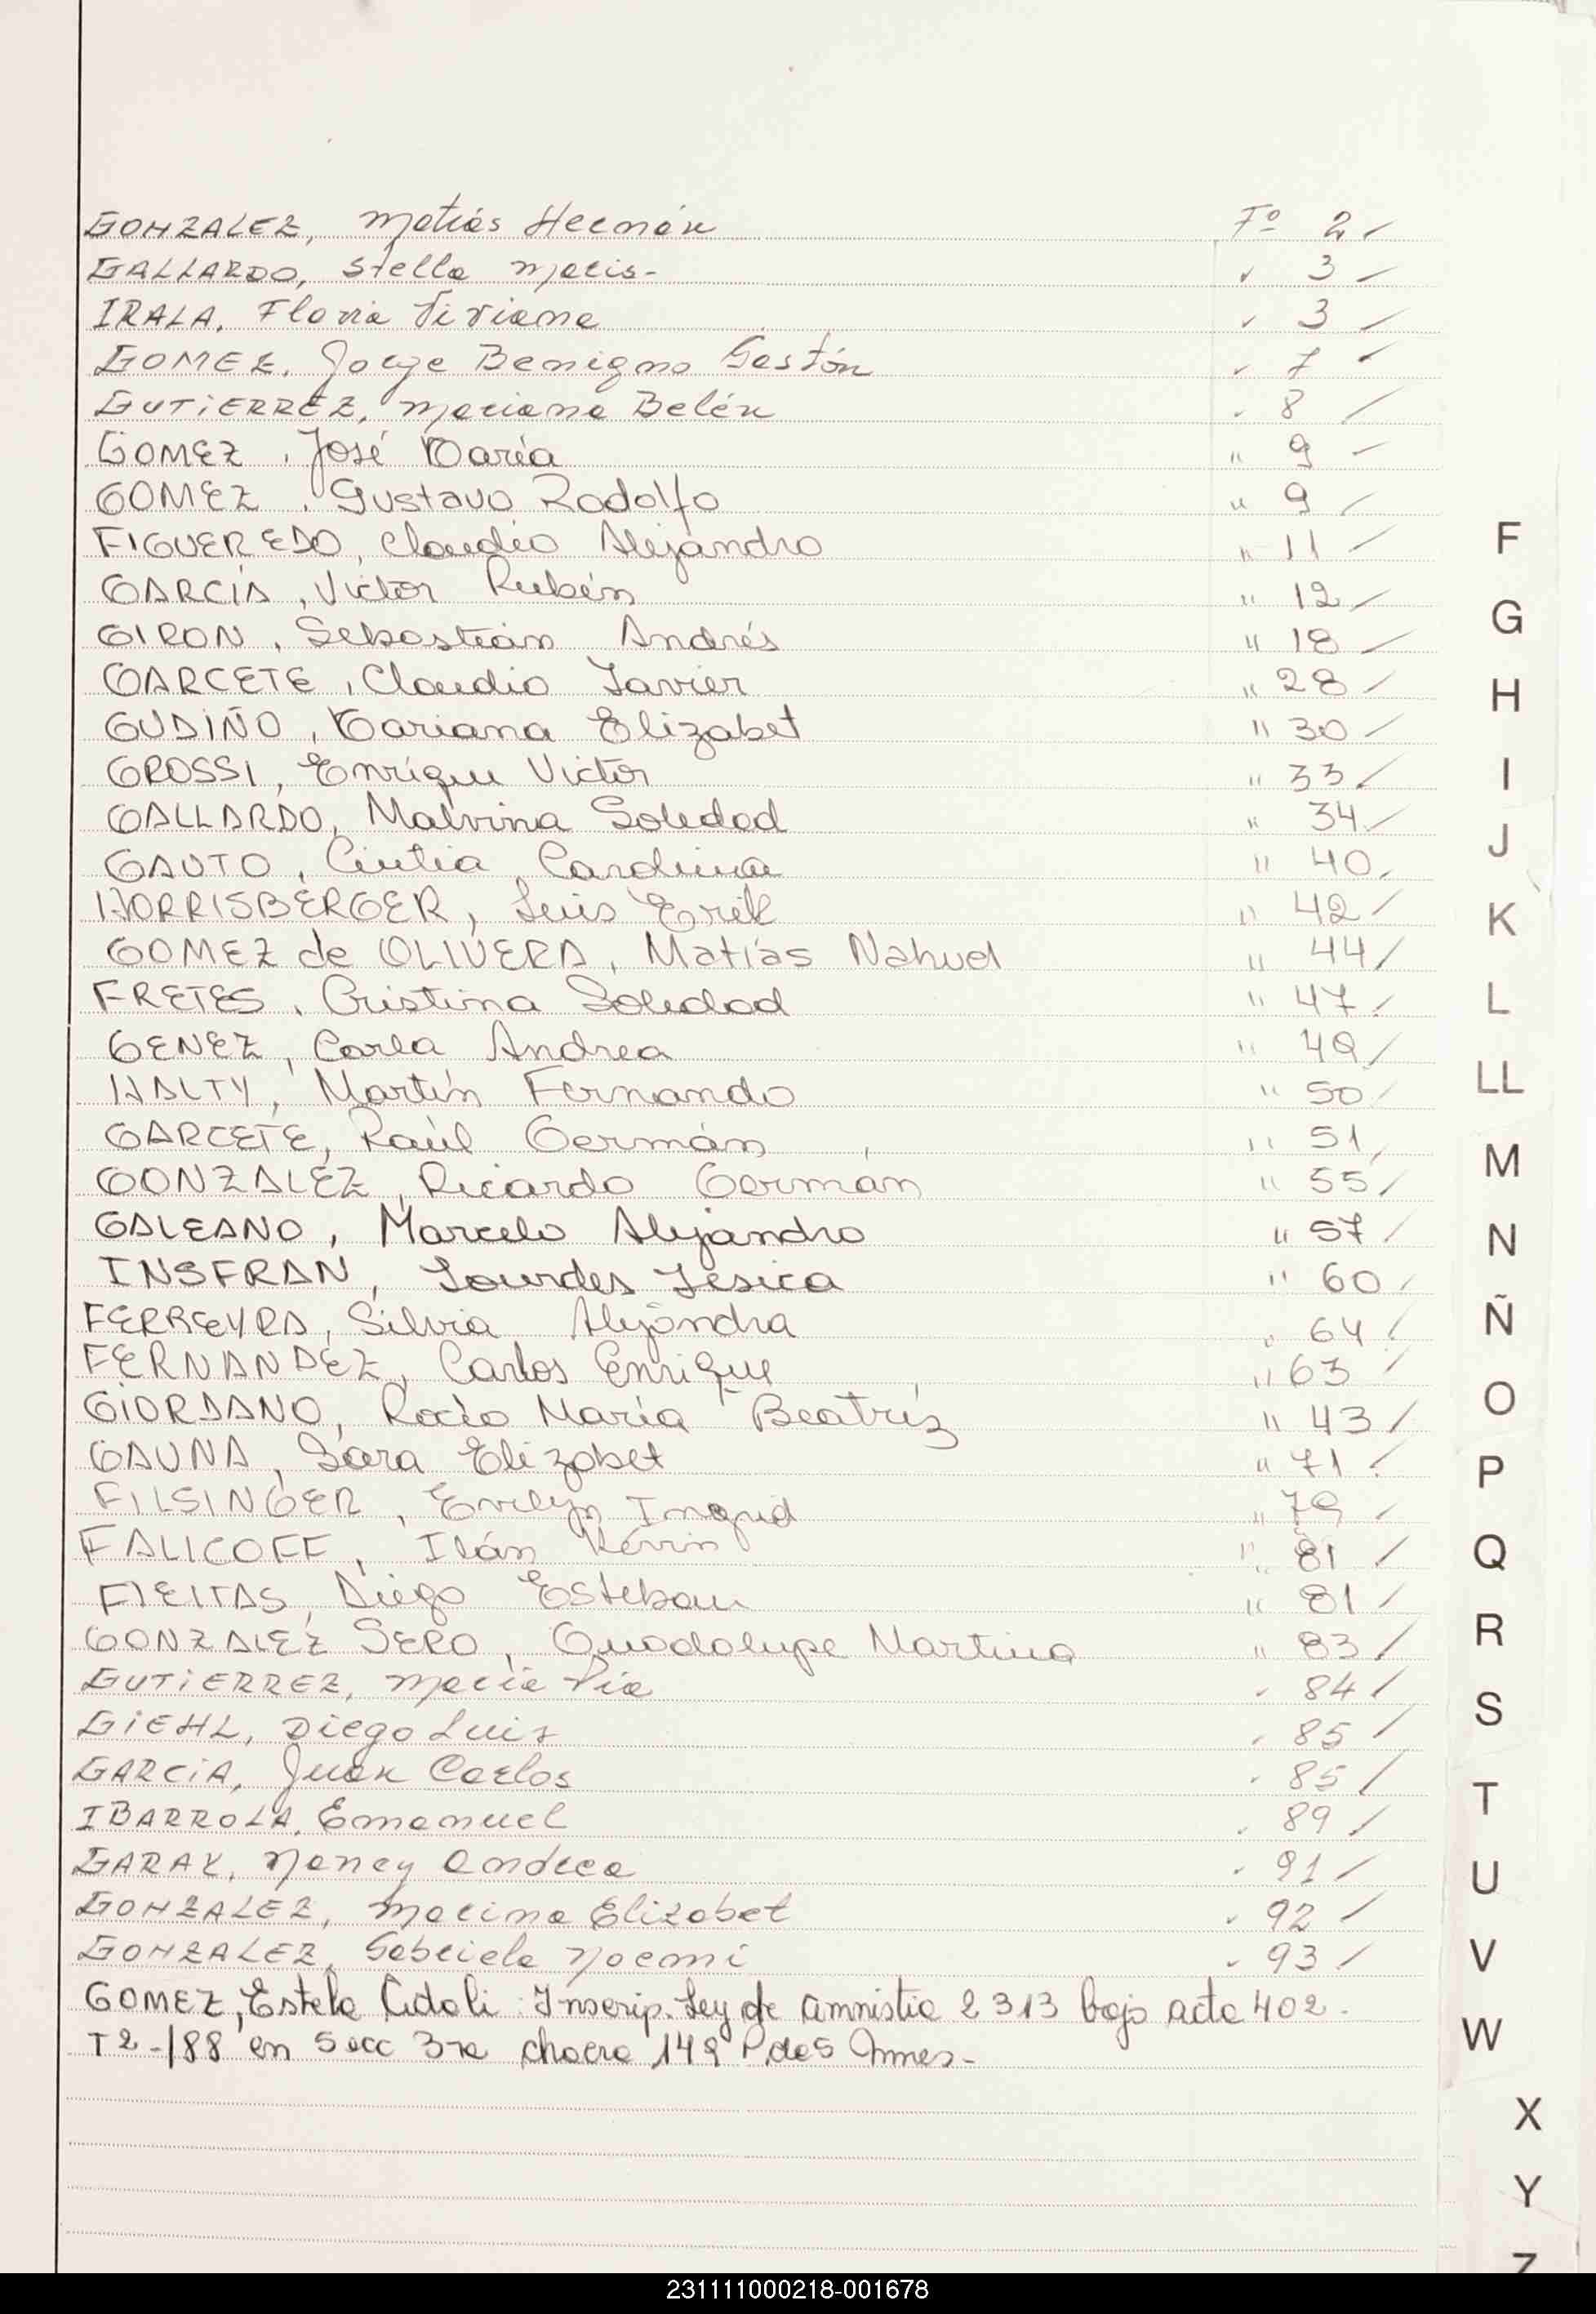 GONZALEZ, Matías Hernán Fº 2
GALLARDO, Stella Maris- " 3
IRALA, Flavia Viviana " 3
GOMEZ, Jorge Benigno Gastón " 7
GUTIERREZ, Mariana Belén " 8
GOMEZ, José María " 9
GOMEZ, Gustavo Rodolfo " 9
FIGUEREDO, Claudio Alejandro " 11
GARCÍA, Victor Rubén " 12
GIRON, Sebastián Andrés " 18
GARCETE, Claudio Javier " 28
GUDIÑO, Mariana Elizabet " 30
GROSSI, Enrique Victor " 33
GALLARDO, Malvina Soledad " 34
GAUTO, Cintia Carolina " 40
HORRISBERGER, Luis Erik " 42
GOMEZ de OLIVERA, Matías Nahuel " 44
FRETES, Cristina Soledad " 47
GENEZ, Carla Andrea " 49
HALTY, Martín Fernando " 50
GARCETE, Raúl Germán " 51
GONZALEZ, Ricardo Germán " 55
GALEANO, Marcelo Alejandro " 57
INSFRAN, Lourdes Jesica " 60
FERREYRA, Silvia Alejandra " 64
FERNANDEZ, Carlos Enrique " 63
GIORDANO, Rocío María Beatriz " 43
GAUNA, Sara Elizabet " 71
FILSINGER, Evelyn Ingrid " 79
FALICOFF, Ilán Kevin " 81
FLEITAS, Diego Esteban " 81
GONZALEZ SERO, Guadalupe Martina " 83
GUTIERREZ, María Pía " 84
GIEHL, Diego Luis " 85
GARCIA, Juan Carlos " 85
IBARROLA, Emanuel " 89
GARAY, Nancy Andrea " 91
GONZALEZ, Marina Elizabet " 92
GONZALEZ, Gabriela Noemi " 93
GOMEZ, Estela : Inscrip. Ley de amnistia 2313 bajo acta 402.
T2-/88 en Secc 3ra chacra 149 Pdas Mnes-
F
G
H
I
J
K
L
LL
M
N
Ñ
O
P
Q
R
S
T
U
V
W
X
Y
Z
231111000218-001678